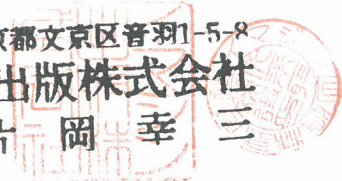 京都文京区音羽1-5-8
出版株式会社
片岡幸三